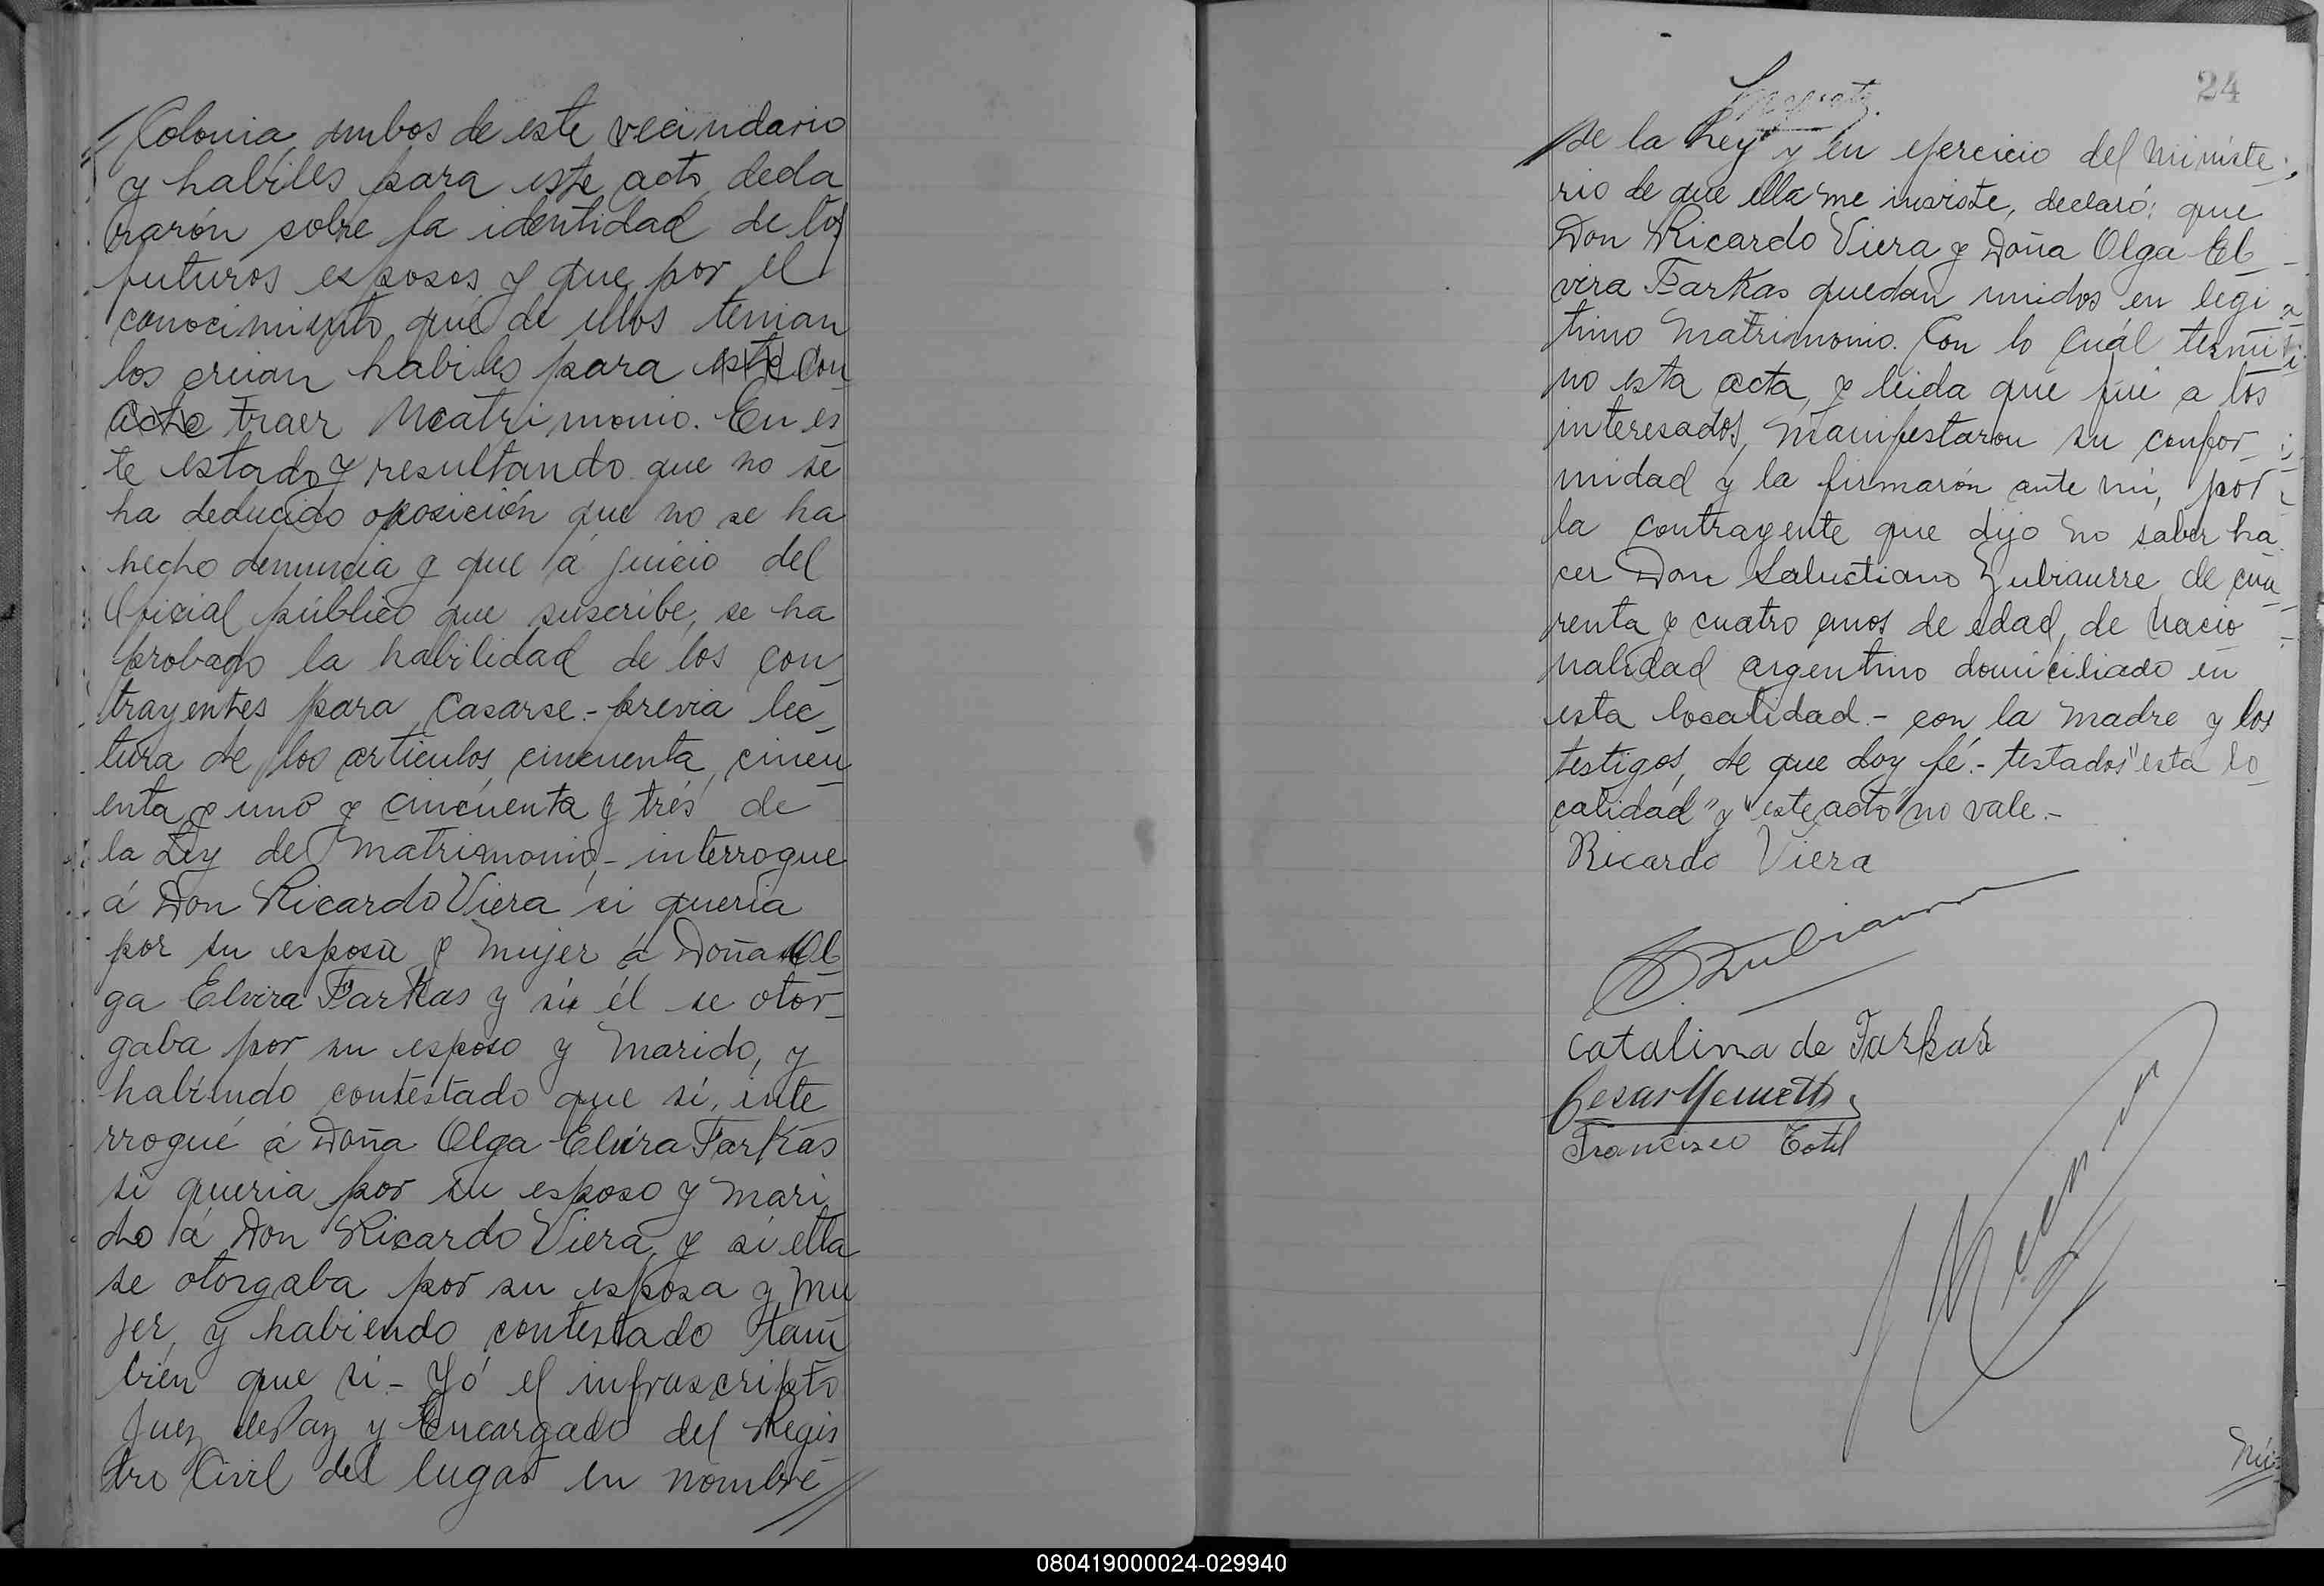 Colonia, ambos de este vecindario
y habiles para este acto decla
rarón sobre la identidad de los
futuros esposos y que por el
conocimiento que de ellos tenian
los creian habiles para este con
acto traer Matrimonio. En es
te estado y resultando que no se
ha deducido oposición que no se ha
hecho denuncia y que á juicio del
Oficial público que suscribe, se ha
probado la habilidad de los con
trayentes para casarse.- previa lec
tura de los articulos cincuenta, cincu
enta y uno y cincuenta y trés de
la Ley de Matrimonio,- interrogue
á Don Ricardo Viera si queria
por su esposa y mujer á Doña Ol
ga Elvira Farkas y si él se otor-
gaba por su esposo y Marido, y
habiendo contestado que sí, inte
rrogué á Doña Olga Elvira Farkas
si queria por su esposo y mari
do á Don Ricardo Viera, y si ella
se otorgaba por su esposa y mu
jer, y habiendo contestado tam
bien que si- Yó el infrascripto
Juez de Paz y Encargado del Regis
tro Civil del lugar en nombre
24
de la Ley y en ejercicio del Ministe
rio de que ella me inviste, declaró: que
Don Ricardo Viera y Doña Olga El-
vira Farkas quedan unidos en legi
timo Matrimonio. Con lo cuál termi
no esta acta, y leida que fué a los
interesados, manifestaron su confor
midad y la firmarón ante mi, por
la contrayente que dijo no saber ha
cer Don Salustiano Zubiaurre, de cua
renta y cuatro años de edad, de nacio
nalidad argentino domiciliado en
esta localidad.- con la madre y los
testigos, de que doy fé.- testados "esta lo
calidad" y "este acto" no vale.-
Ricardo Viera
Catalina de Farkas
Francisco
080419000024-029940